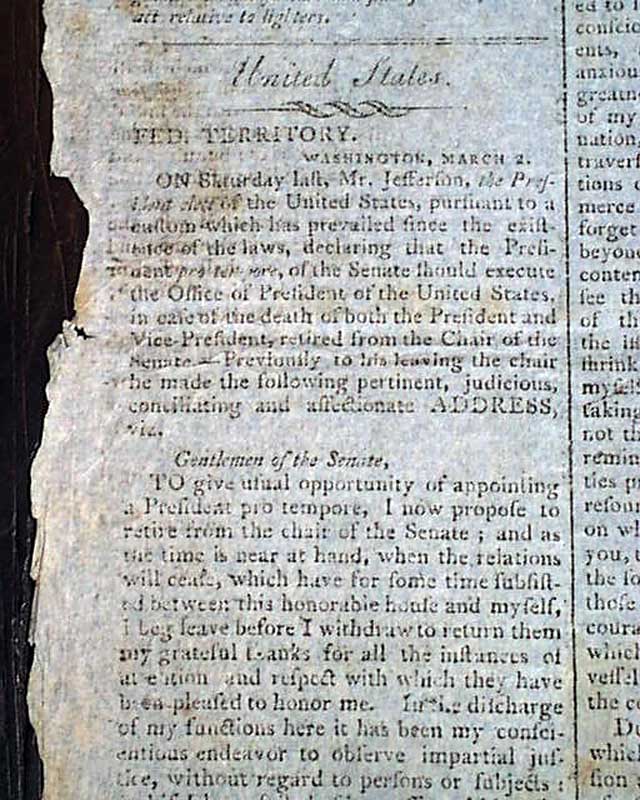 act relative to lighters.
United States.
FED. TERRITORY.
WASHINGTON, MARCH 2.
ON Saturday laſt, Mr. Jefferſon, the Preſ-
ident elect of the United States, purſuant to a
cuſtom which has prevailed ſince the exiſt-
tence of the laws, declaring that the Preſi-
dent pro tempore, of the Senate ſhould execute
the Office of Preſident of the United States,
in caſe of the death of both the Preſident and
Vice-Preſident, retired from the Chair of the
Senate.—Previouſly to his leaving the chair
he made the following pertinent, judicious,
conciliating and affectionate ADDRESS,
viz.
Gentlemen of the Senate,
TO give uſual opportunity of appointing
a Preſident pro tempore, I now propoſe to
retire from the chair of the Senate ; and as
the time is near at hand, when the relations
will ceaſe, which have for ſome time ſubſiſt-
ed between this honorable houſe and myſelf,
I beg leave before I withdraw to return them
my grateful thanks for all the inſtances of
attention and reſpect with which they have
been pleaſed to honor me. In the diſcharge
of my functions here it has been my conſci-
entious endeavor to obſerve impartial juſ-
tice, without regard to perſons or ſubjects :
ed to
conſcio
ents,
anxiou
greatne
of my
nation,
traverſ
tions
merce
forget
beyon
conten
ſee th
of th
the
ſhrink
myſelf
taking
not th
remin
ties p
reſour
on w
you, t
the ſo
thoſe
coura
which
veſſel
the co
which
ſion